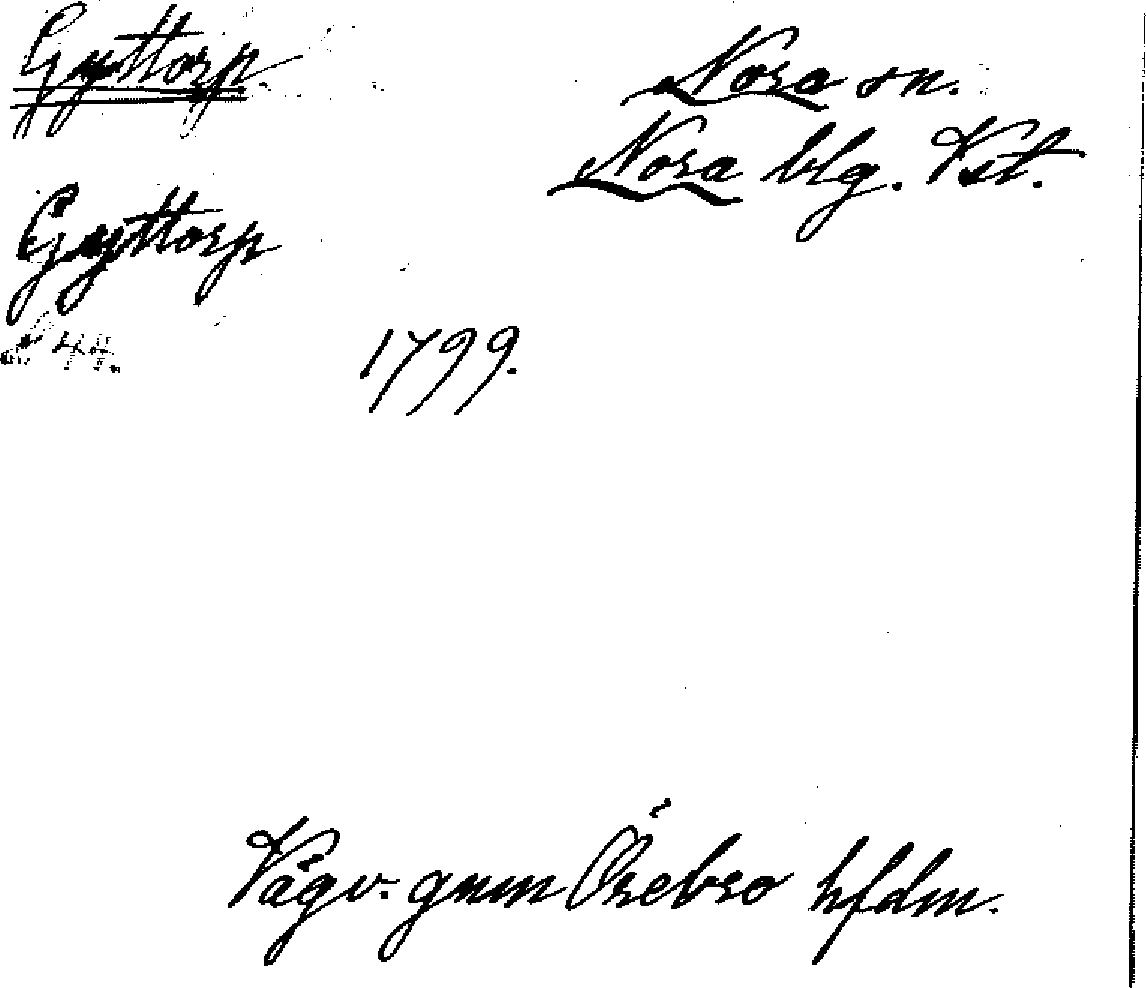 Gyttorp.
Nora sn.
Nora blg. Vst.
Gyttorp
44.
1799.
Vägv. gnm Örebro hfdm.